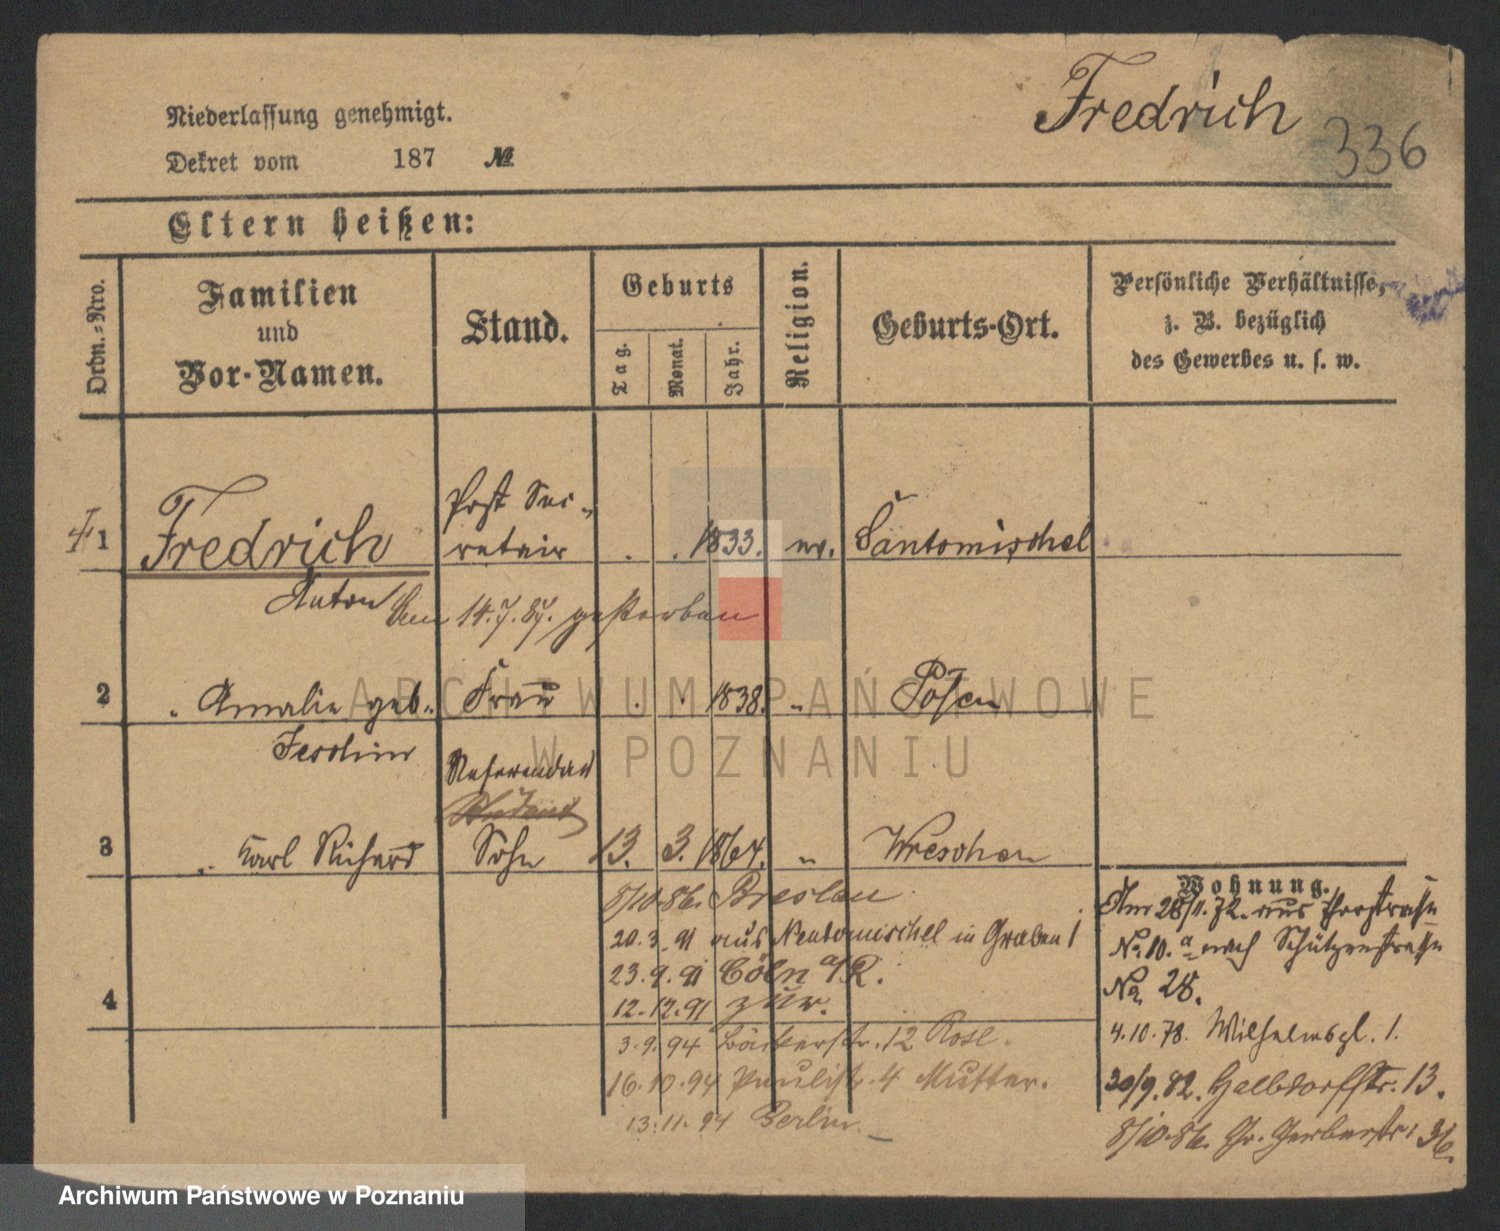 Niederlassung genehmigt.
Dekret vom 187 №
Fredrich
336
Eltern heißen:
Ordn.=Nro.
Familien
und
Vor-Namen.
Stand.
Geburts
Tag.
Monat.
Jahr.
Religion.
Geburts-Ort.
Persönliche Verhältnisse,
z. B. bezüglich
des Gewerbes u. s. w.
1 Fredrich Post Sec-
retair . . 1833. ev. Santomischel
Anton Am 14.7.87. gestorben
2 " Amalie geb. Frau . . 1838. " Posen
Referendar
3 " Karl Richard Sohn 13. 3. 1864. " Wreschen
8/10.86. Breslau
20.3.91 aus Neutomischel in Graben 1
23.9.91 Cöln a/R.
12.12.91 zur.
4
3.9.94 Bäckerstr. 12
16.10.94 Paulistr. 4 Mutter.
13.11.94 Berlin.
Wohnung.
Am 28/11.72. aus
No. 10.a nach Schützenstraße
No. 28.
4.10.78. Wilhelmspl. 1.
30/9.82. Halbdorfstr. 13.
8/10.86. Gr. Gerberstr. 36.
ARCHIWUM PAŃSTWOWE
W POZNANIU
Archiwum Państwowe w Poznaniu